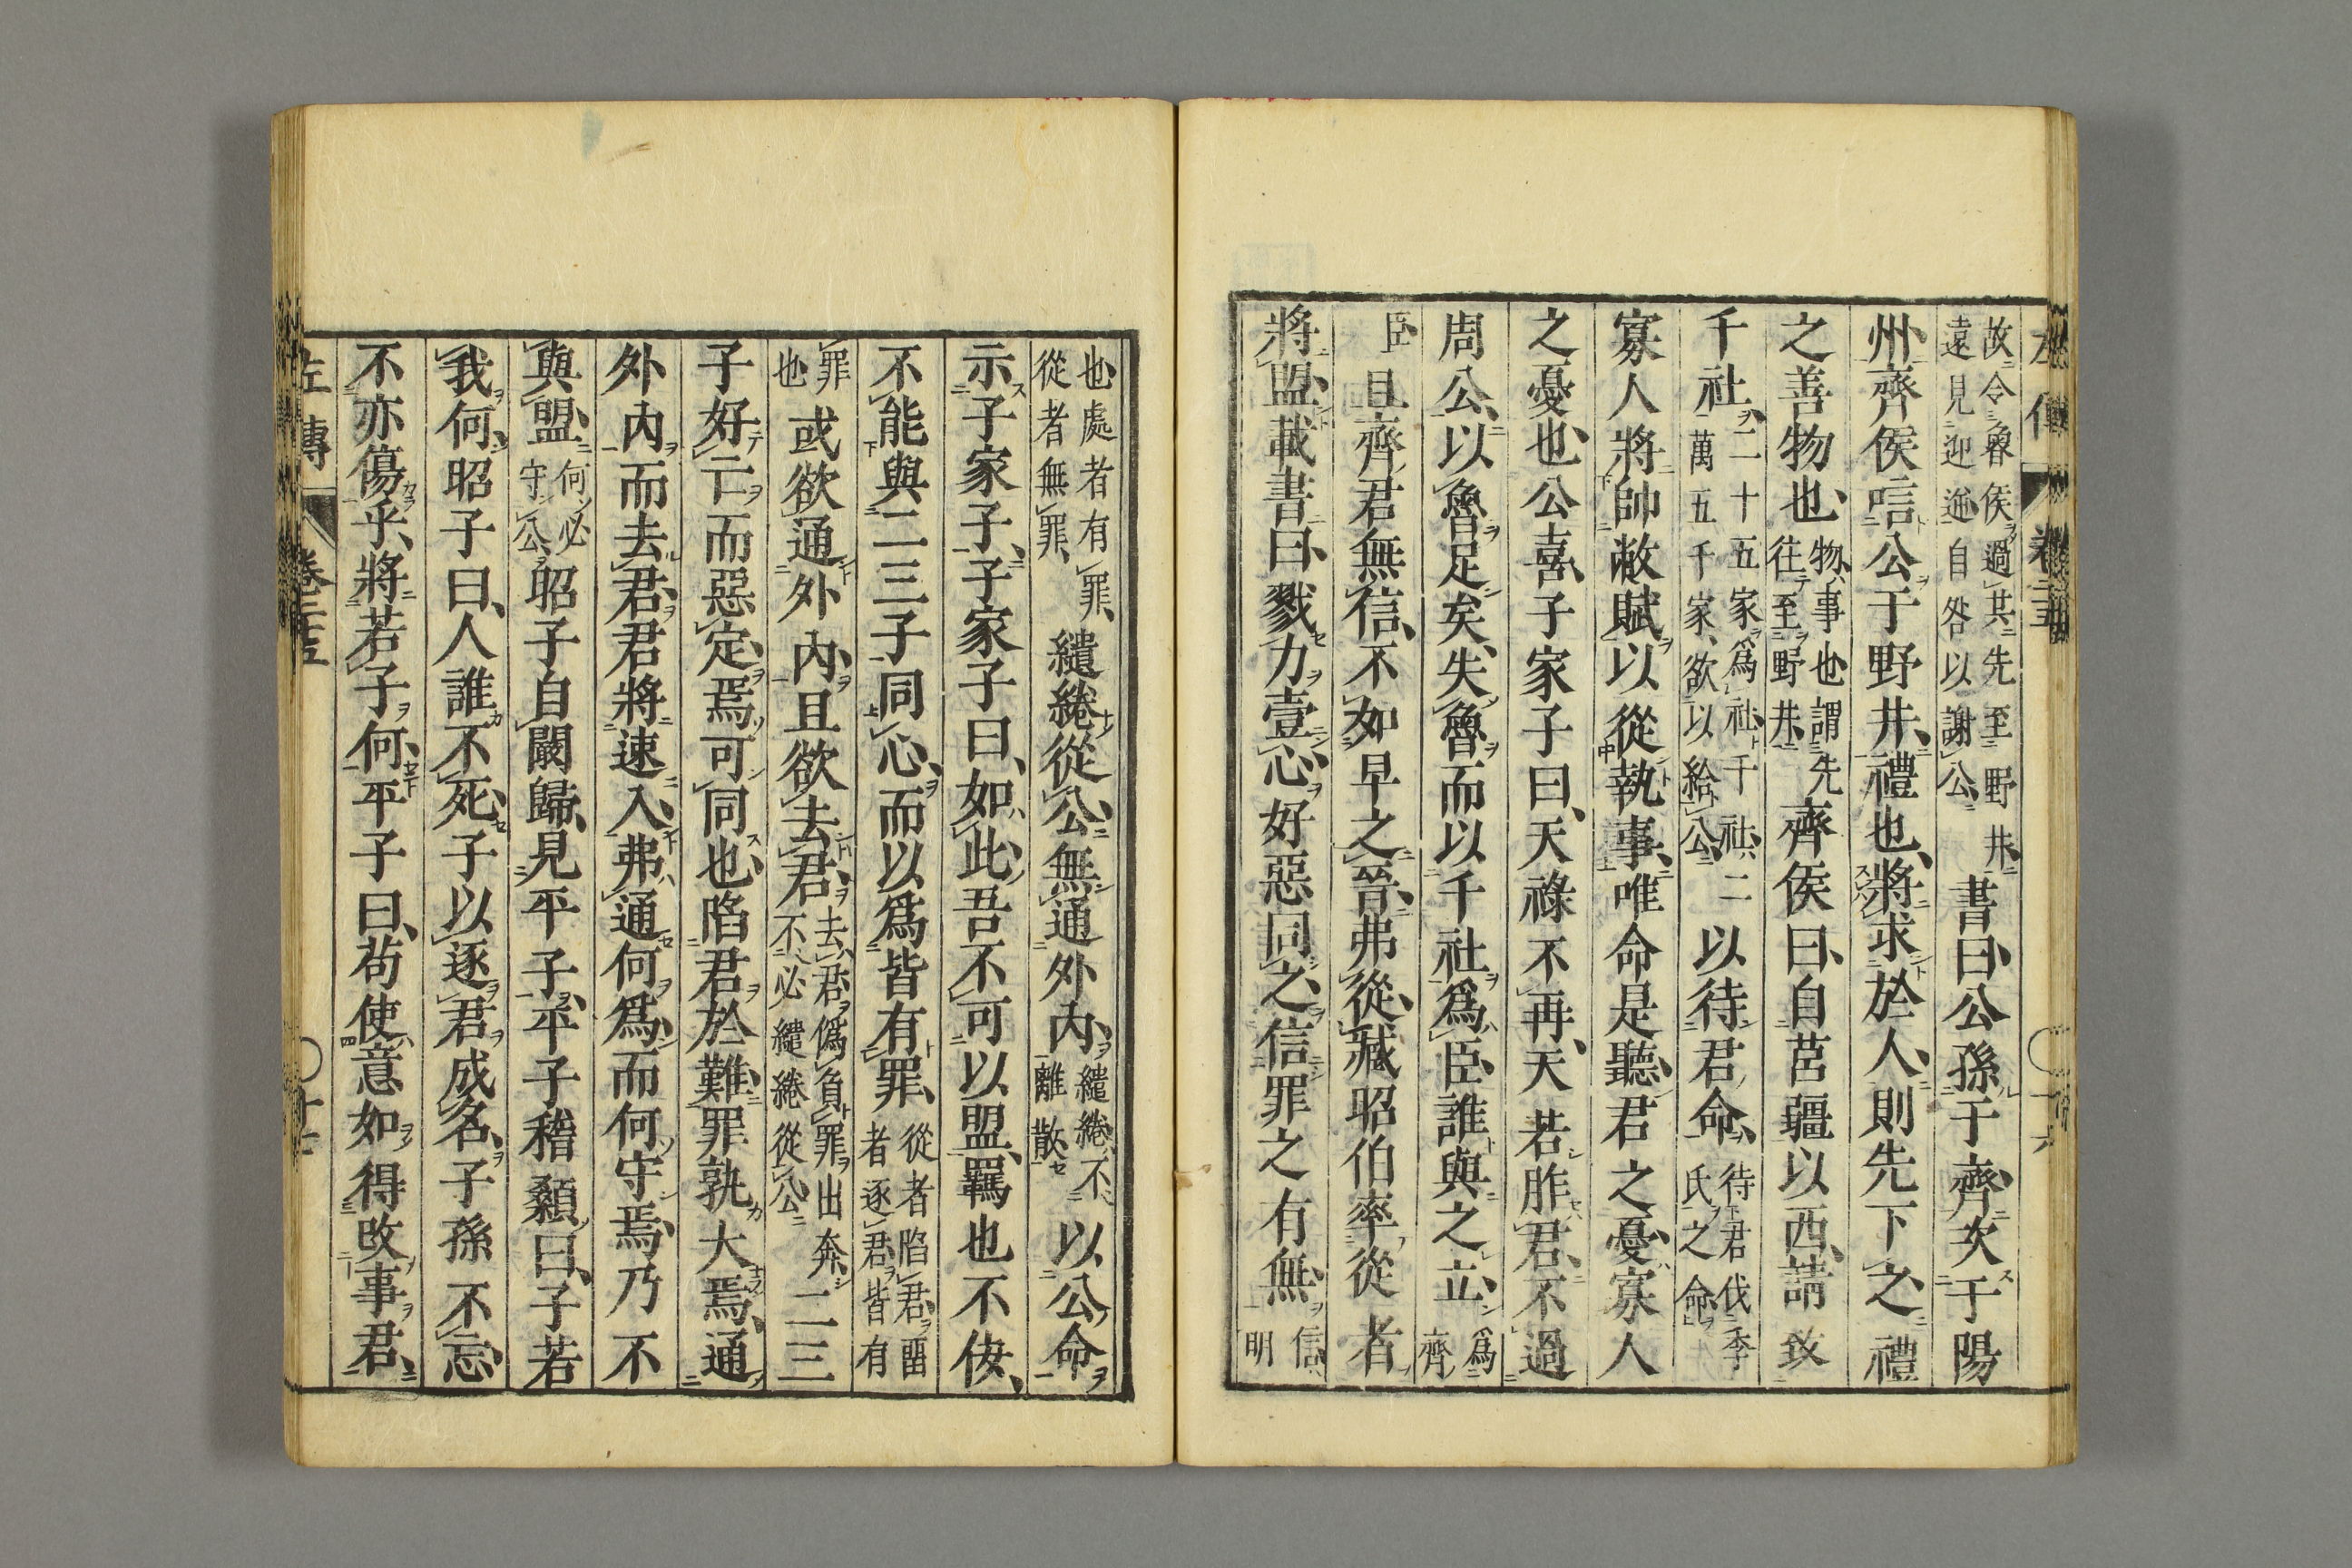 故令魯侯過其先至野井
遠見迎逆自咎以謝公
書曰公孫于齊次于陽
州齊侯唁公于野井禮也將求於人則先下之禮
之善物也
物事也謂先
往至野井
齊侯曰自莒疆以西請致
千社
二十五家爲社千社二
萬五千家欲以給公
以待君命
待君伐季
氏之命
寡人將帥敝賦以從執事唯命是聽君之憂寡人
之憂也公喜子家子曰天祿不再天若胙君不過
周公以魯足矣失魯而以千社爲臣誰與之立
爲齊
臣
且齊君無信不如早之晉弗從臧昭伯率從者
將盟載書曰戮力壹心好惡同之信罪之有無
信
明
也處者有罪
從者無罪
繾綣從公無通外內
繾綣不
離散
以公命
示子家子子家子曰如此吾不可以盟羈也不佞
不能與二三子同心而以爲皆有罪
從者陷君留
者逐君皆有
罪
也
或欲通外內且欲去君
去君僞負罪出奔
不必繾綣從公
二三
子好亡而惡定焉可同也陷君於難罪孰大焉通
外內而去君君將速入弗通何爲而何守焉乃不
與盟
何必
守公
昭子自闞歸見平子平子稽顙曰子若
我何昭子曰人誰不死子以逐君成名子孫不忘
不亦傷乎將若子何平子曰苟使意如得改事君
左傳 卷二十五